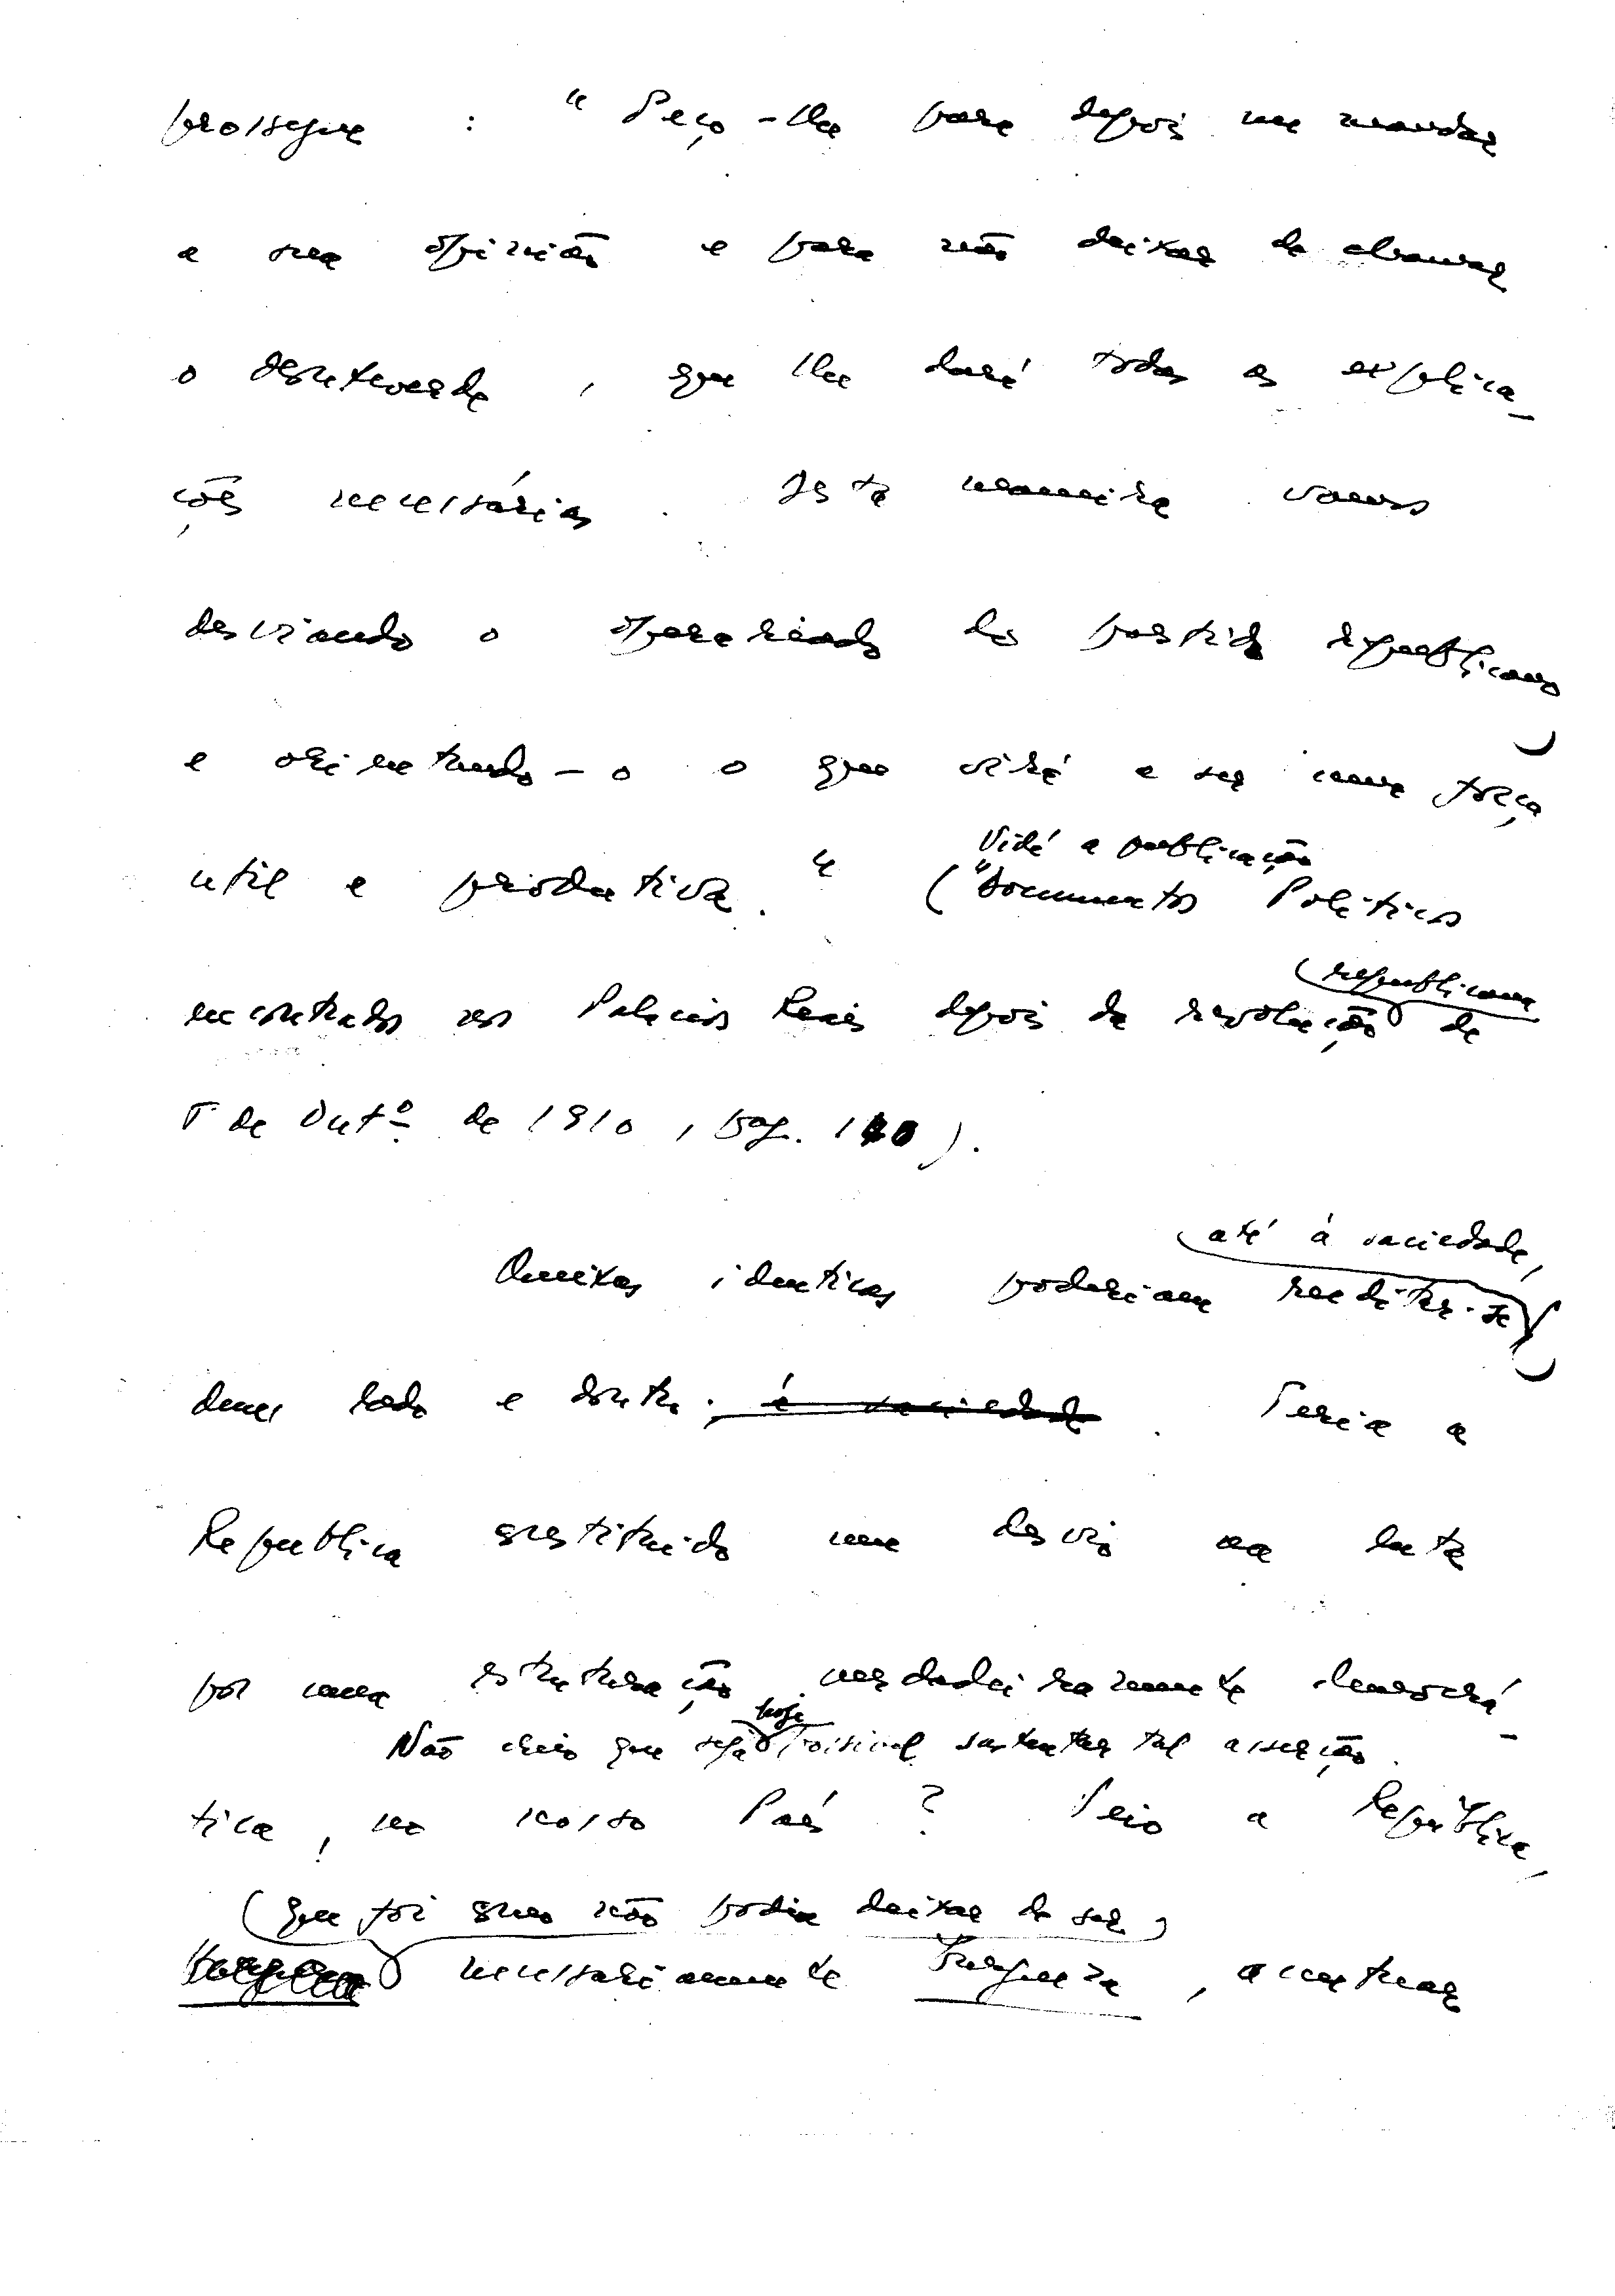 prossegue : " Peço-lhe para depois me mandar
a sua opinião e para não deixar de chamar
o , que lhe dará todas as explica_
ções necessárias . Desta maneira vamos
desviando o operariado do partido republicano
e orientando-o o que virá a ser uma força
util e productiva. "
Vidé a publicação
("Documentos Politicos
(republicana
encontrados nos Palacios Reais depois da revolução de
5 de Outº de 1910 , pag. ).
até à saciedade,
identicas poderiam reeditar-se
dum lado e doutro. à saciedade . Seria a
Republica constituido um desvio na luta
por uma estruturação verdadeiramente democrá_
hoje
Não creio que seja possivel sustentar tal asserção.
tica, no nosso País ? Seio a República,
(que foi que não podia deixar de ser,
necessariamente burgueza , acentuar